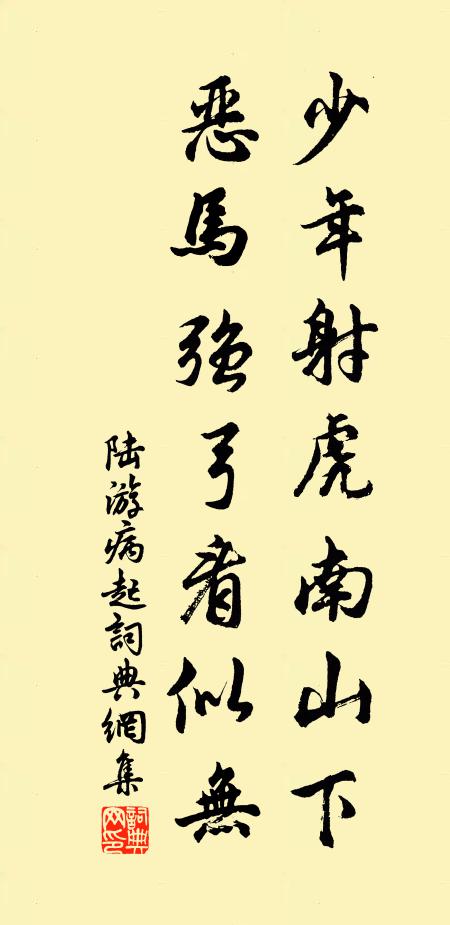 少年射虎南山下
惡馬強弓看似無
陆游病起詞典網集
詞典
网印